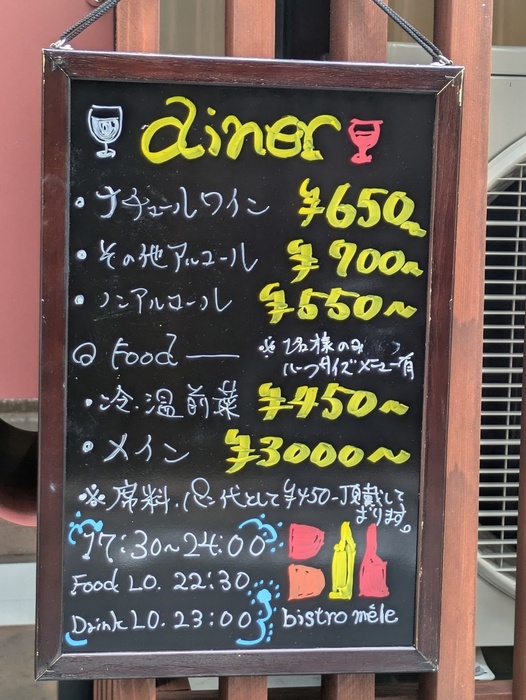 diner
・ナチュールワイン ¥650～
・その他アルコール ¥700～
・ノンアルコール ¥550～
◎ Food ―
※ 1名様のみ
ハーフサイズメニュー有
・冷.温前菜 ¥450～
・メイン ¥3000～
※席料.パン代として¥450-頂戴して
おります。
17:30~24:00
Food LO. 22:30
Drink LO. 23:00
bistro mêle